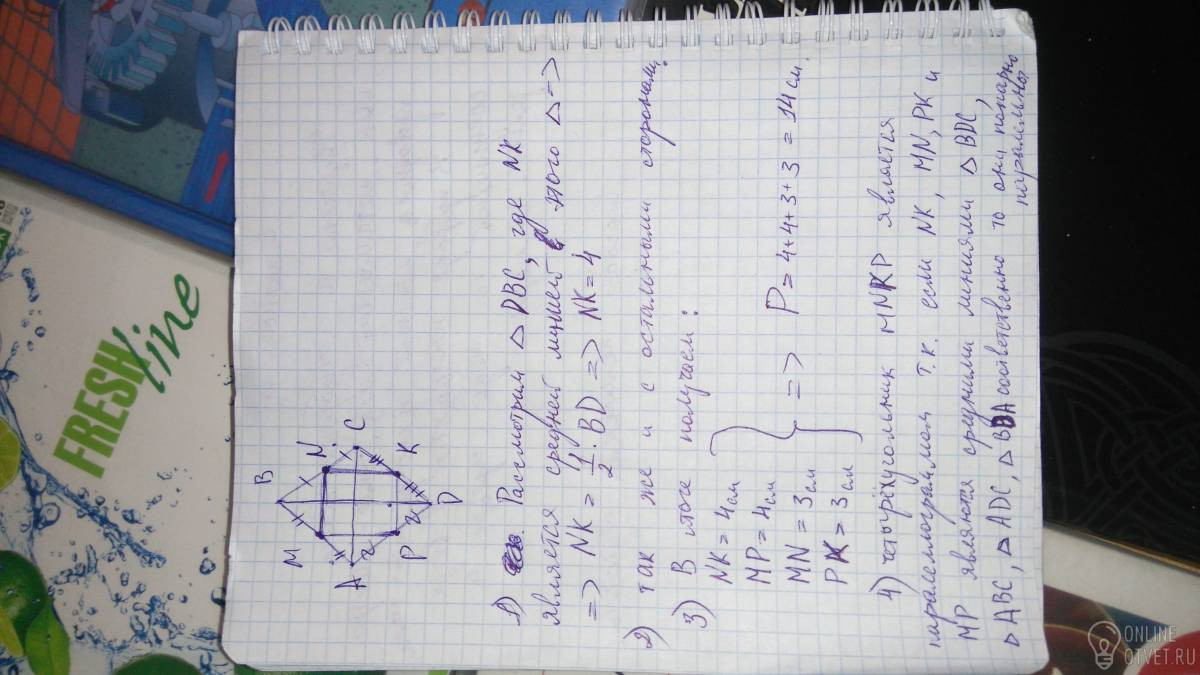 FRESH
line
B
M
N
A
C
P
K
D
1) Рассмотрим △ DBC, где NK
является средней линией этого △ =>
=> NK = 1/2 · BD => NK = 4
2) так же и с остальными сторонами.
3) В итоге получаем:
NK = 4 см
MP = 4 см
MN = 3 см
PK = 3 см
=> P = 4+4+3+3 = 14 см.
4) четырёхугольник MNKP является
параллелограммом т.к. если NK, MN, PK и
MP являются средними линиями △ BDC,
△ ABC, △ ADC, △ BDA соответственно то они попарно
ONLINE
OTVET.RU